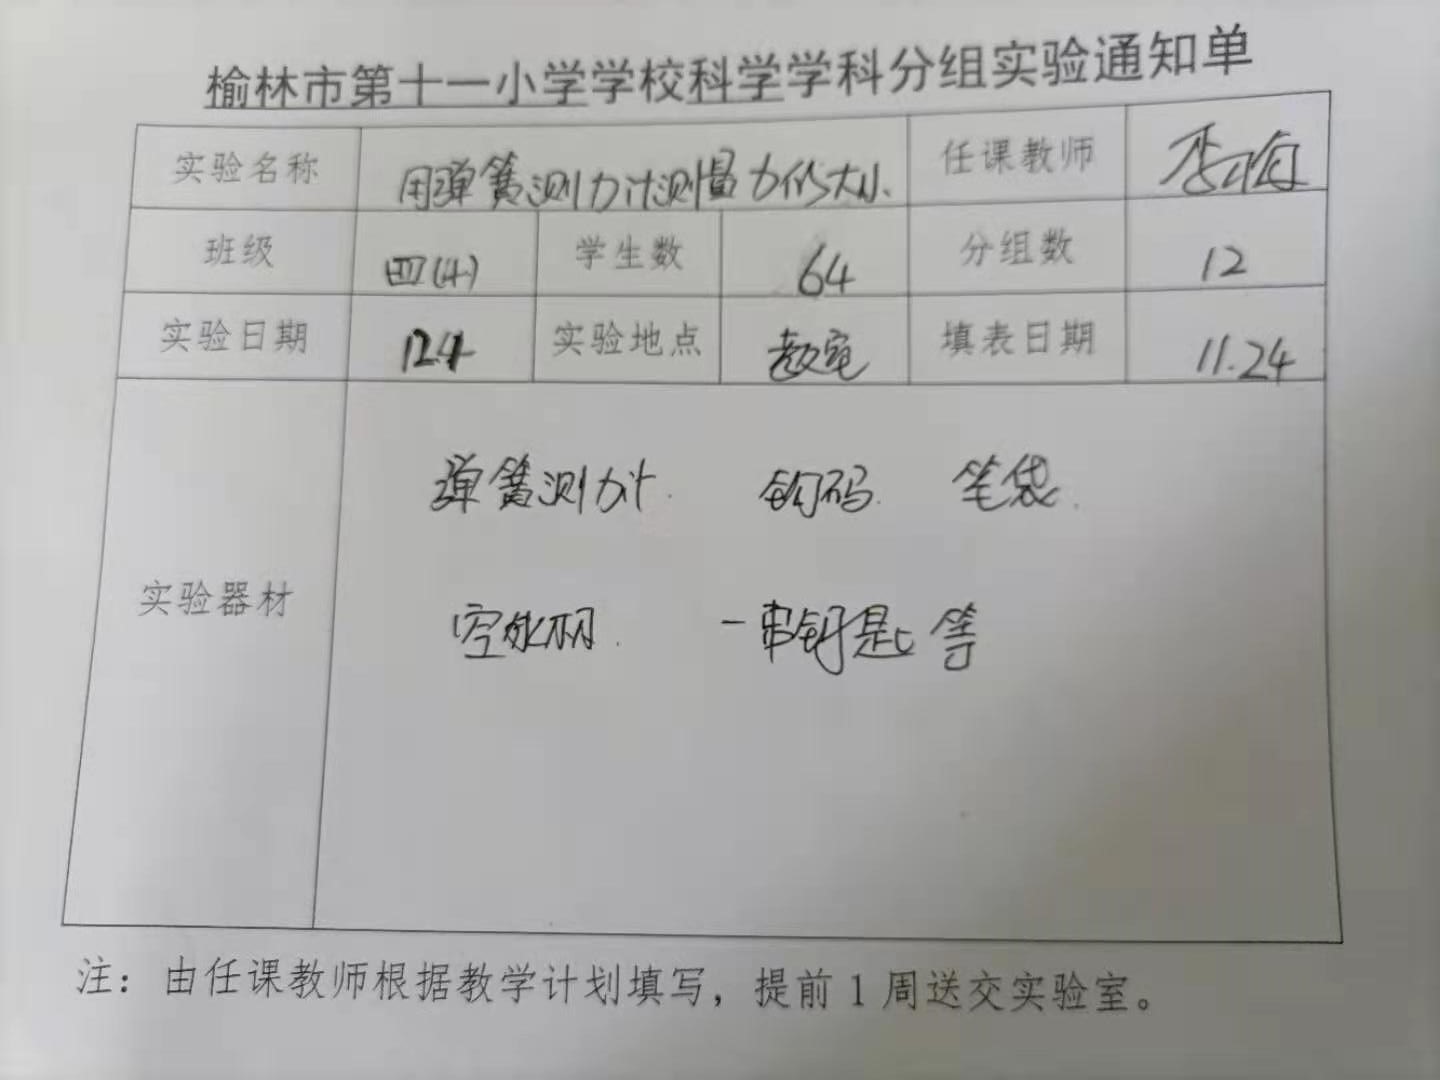 榆林市第十一小学学校科学学科分组实验通知单
实验名称 用弹簧测力计测量力的大小 任课教师 李海
班级 四(4) 学生数 64 分组数 12
实验日期 12.1 实验地点 教室 填表日期 11.24
弹簧测力计 钩码 笔袋
实验器材
空水瓶 一串钥匙 等
注：由任课教师根据教学计划填写，提前1周送交实验室。